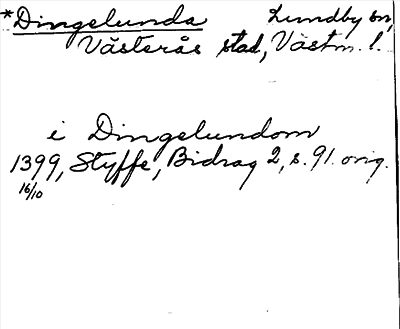 *Dingelunda Lundby sn,
Västerås stad, Västm. l.
i Dingelundom
1399, Styffe, Bidrag 2, s. 91. orig.
16/10